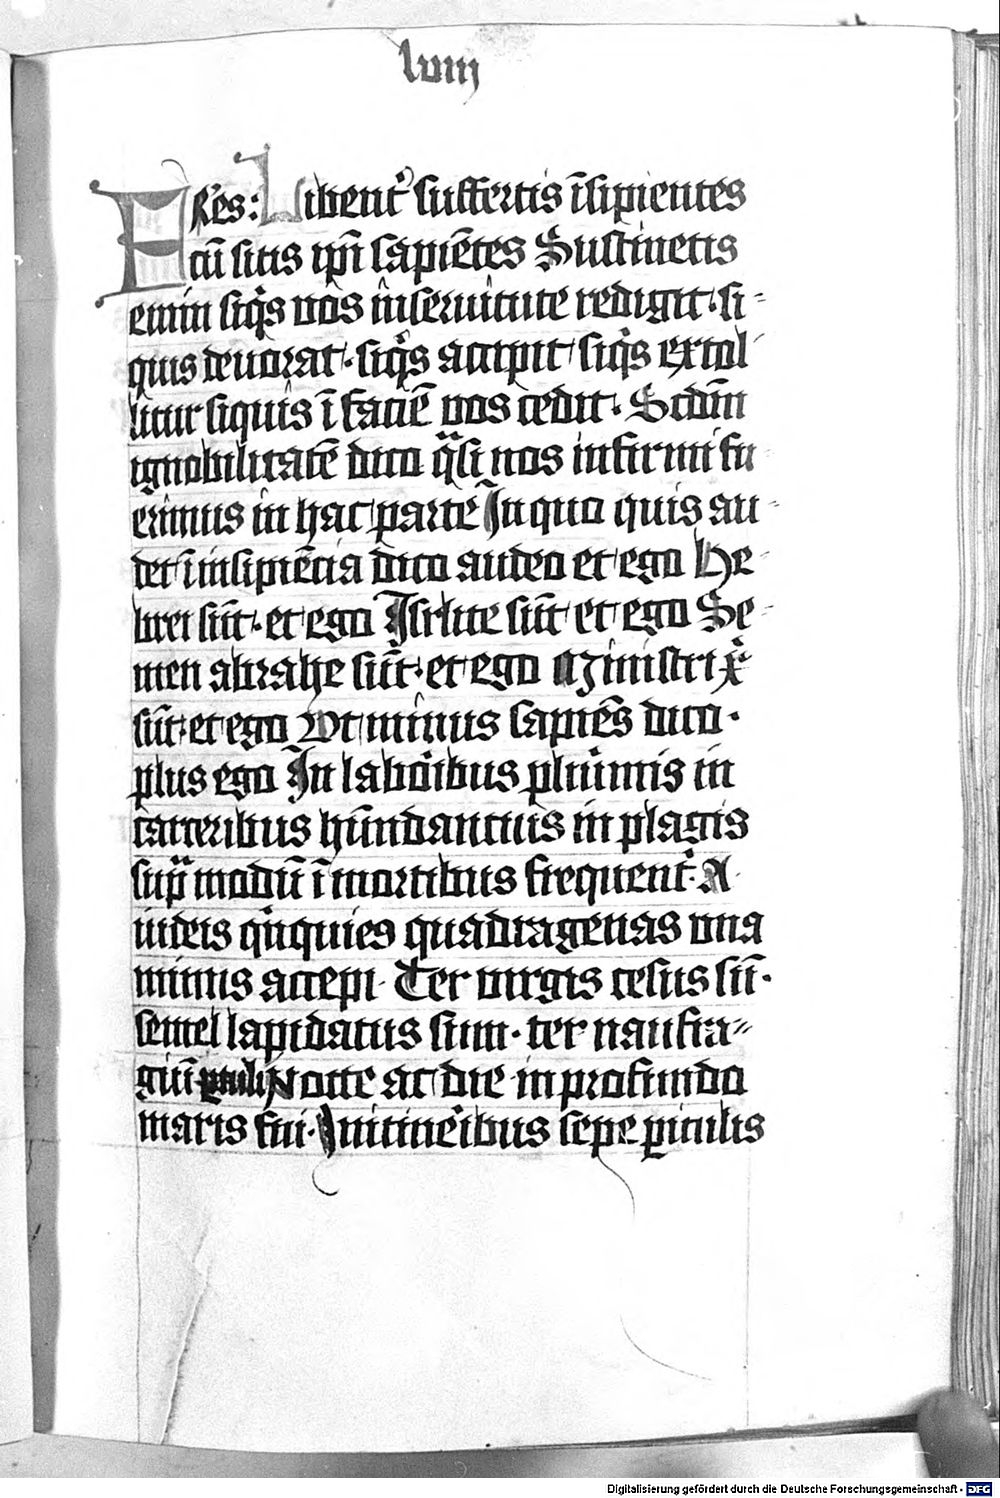 lviij
FRēs: Libent᷑ suffertis ī̄sipientes
cū sitis ip̄i sapiētes Sustinetis
enim siq̇s vos in seruitute redigit · si=
quis deuorat · siq̇s accipit siq̇s extol
litur siquis ī faciē vos cedit · Scd̄m
ignobilitatē dico q̈si nos infirmi fu=
erimus in hac parte In quo quis au=
det in insipiēcia dico audeo et ego He=
brei sūt · et ego Isrl̄ite sūt et ego Se=
men abrahe sūt · et ego Ministri xp̄i
sūt et ego Vt minus sapiēs dico ·
plus ego In laboribus plurimis in
carceribus habundancius in plagis
sup̄ modū ī mortibus frequent᷑ · A
iudeis qinquies quadragenas vna
minus accepi · Ter virgis cesus sū ·
semel lapidatus sum · ter naufra=
giū ptuli Nocte ac die in profundo
maris fui · Initineribus sepe piculis
Digitalisierung gefördert durch die Deutsche Forschungsgemeinschaft - DFG